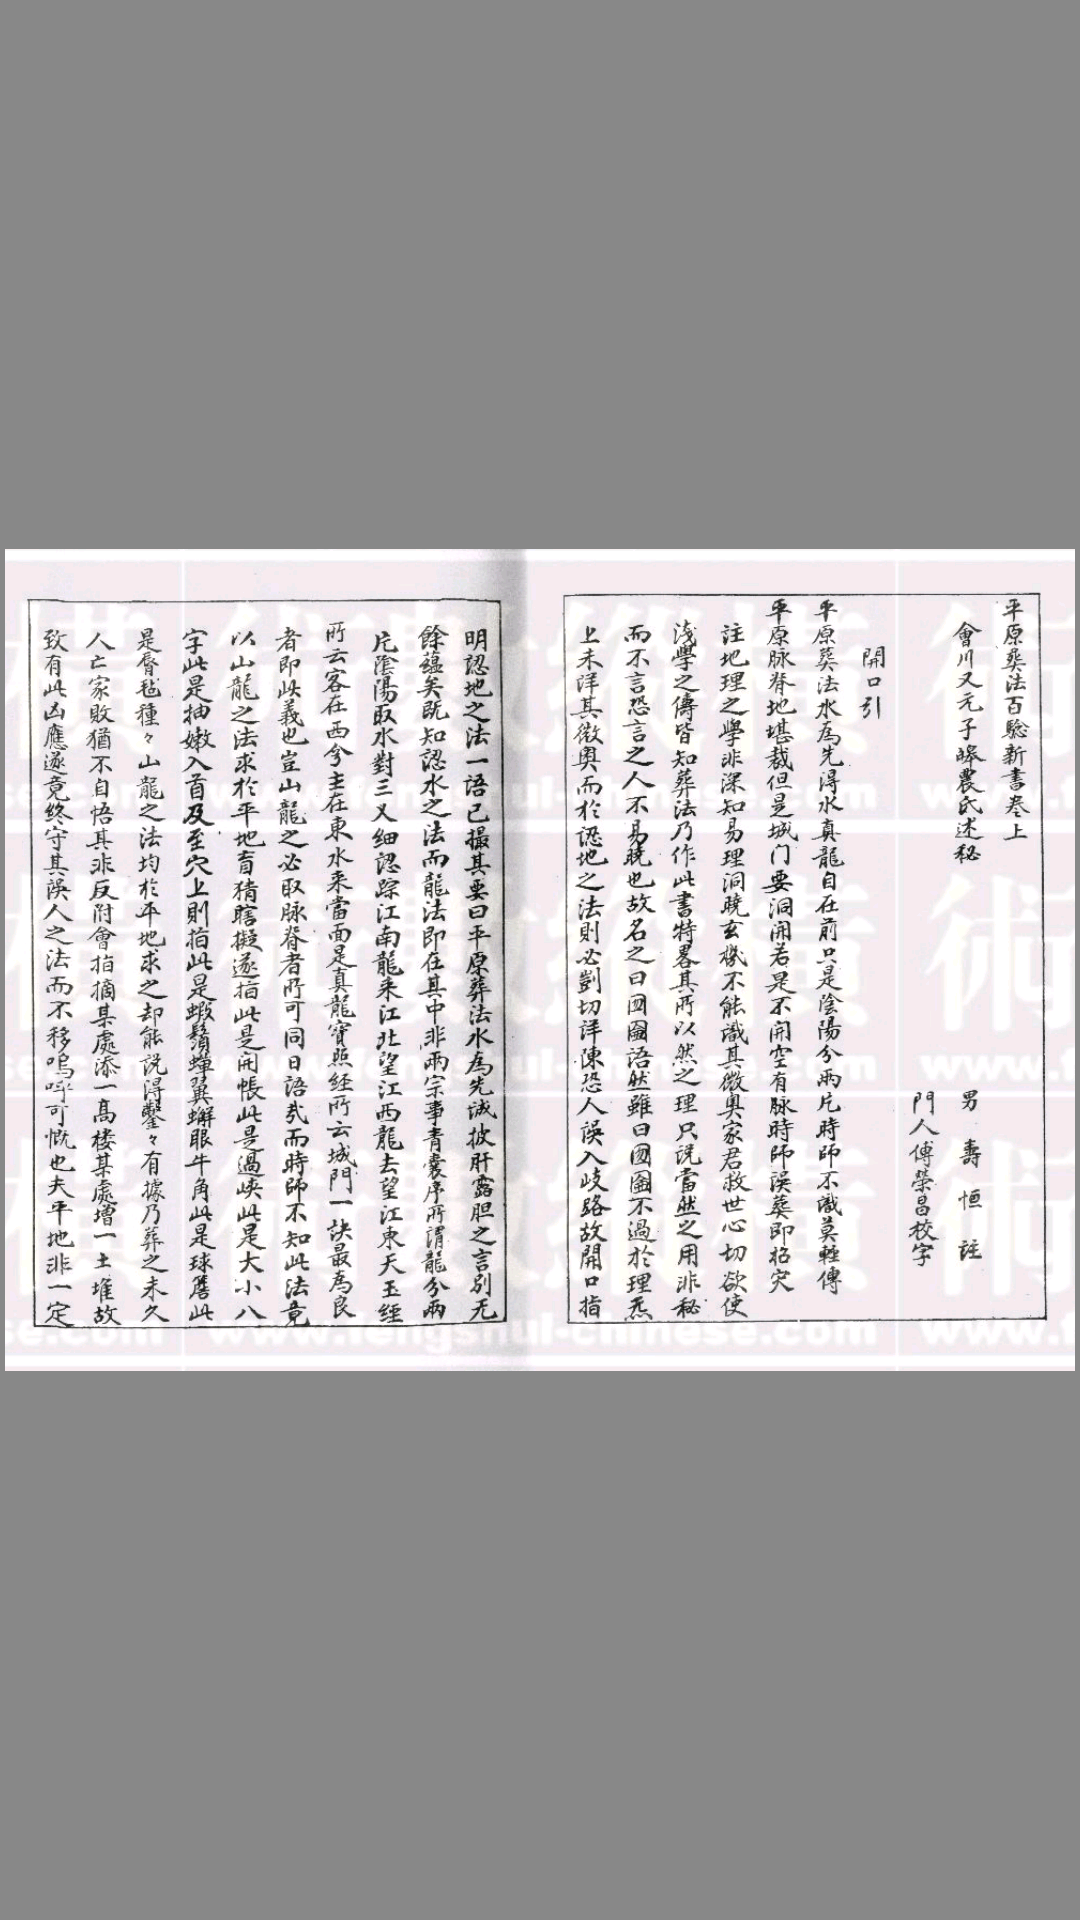 平原葬法百驗新書卷上
會川又元子皞農氏述秘
男壽恒註
門人傅榮昌校字
開口引
平原葬法水為先得水真龍自在前只是陰陽分兩片時師不識莫輕傳
平原脉脊地堪裁但是城门要洞開若是不開空有脉時師誤葬即招灾
註地理之學非深知易理洞曉玄機不能識其微奥家君救世心切欲使
淺學之儔皆知葬法乃作此書特畧其所以然之理只説當然之用非秘
而不言恐言之人不易曉也故名之曰囫圇語然雖曰囫圇不過於理炁
上未詳其微奥而於認地之法則必剴切詳陳恐人误入歧路故開口指
明認地之法一語已撮其要曰平原葬法水為先诚披肝露胆之言别无
餘藴矣既知認水之法而龍法即在其中非兩宗事青囊序所謂龍分兩
片陰陽取水對三叉細認踪江南龍来江北望江西龍去望江東天玉經
所云客在西兮主在東水来當面是真龍寳照經所云城門一訣最為良
者即此義也豈山龍之必取脉脊者所可同日語㢤而時師不知此法竟
以山龍之法求於平地盲猜瞎擬遂指此是開帳此是過峡此是大小八
字此是抽嫩入首及至穴上則指此是蝦鬚蟬翼蠏眼牛角此是球簷此
是唇毡種々山龍之法均於平地求之却能説得鑿々有據乃葬之未久
人亡家敗猶不自悟其非反附會指摘某處添一高楼某處增一土堆故
致有此凶應遂竟終守其误人之法而不移嗚呼可慨也夫平地非一定
www.fengshui-chinese.com